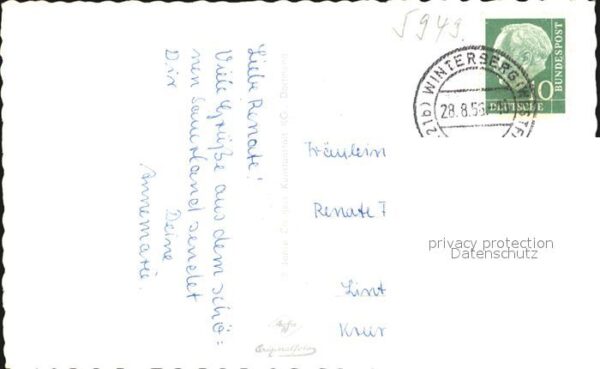 5949.
BUNDESPOST
DEUTSCHE
10
(21b) WINTERBERG (WESTF
28.8.56
Liebe Renate!
Viele Grüße aus dem schö=
nen Sauerland sendet
Dir
Deine
Annemarie.
Fräulein
Renate
Lint
Krer
privacy protection
Datenschutz
Originalfoto